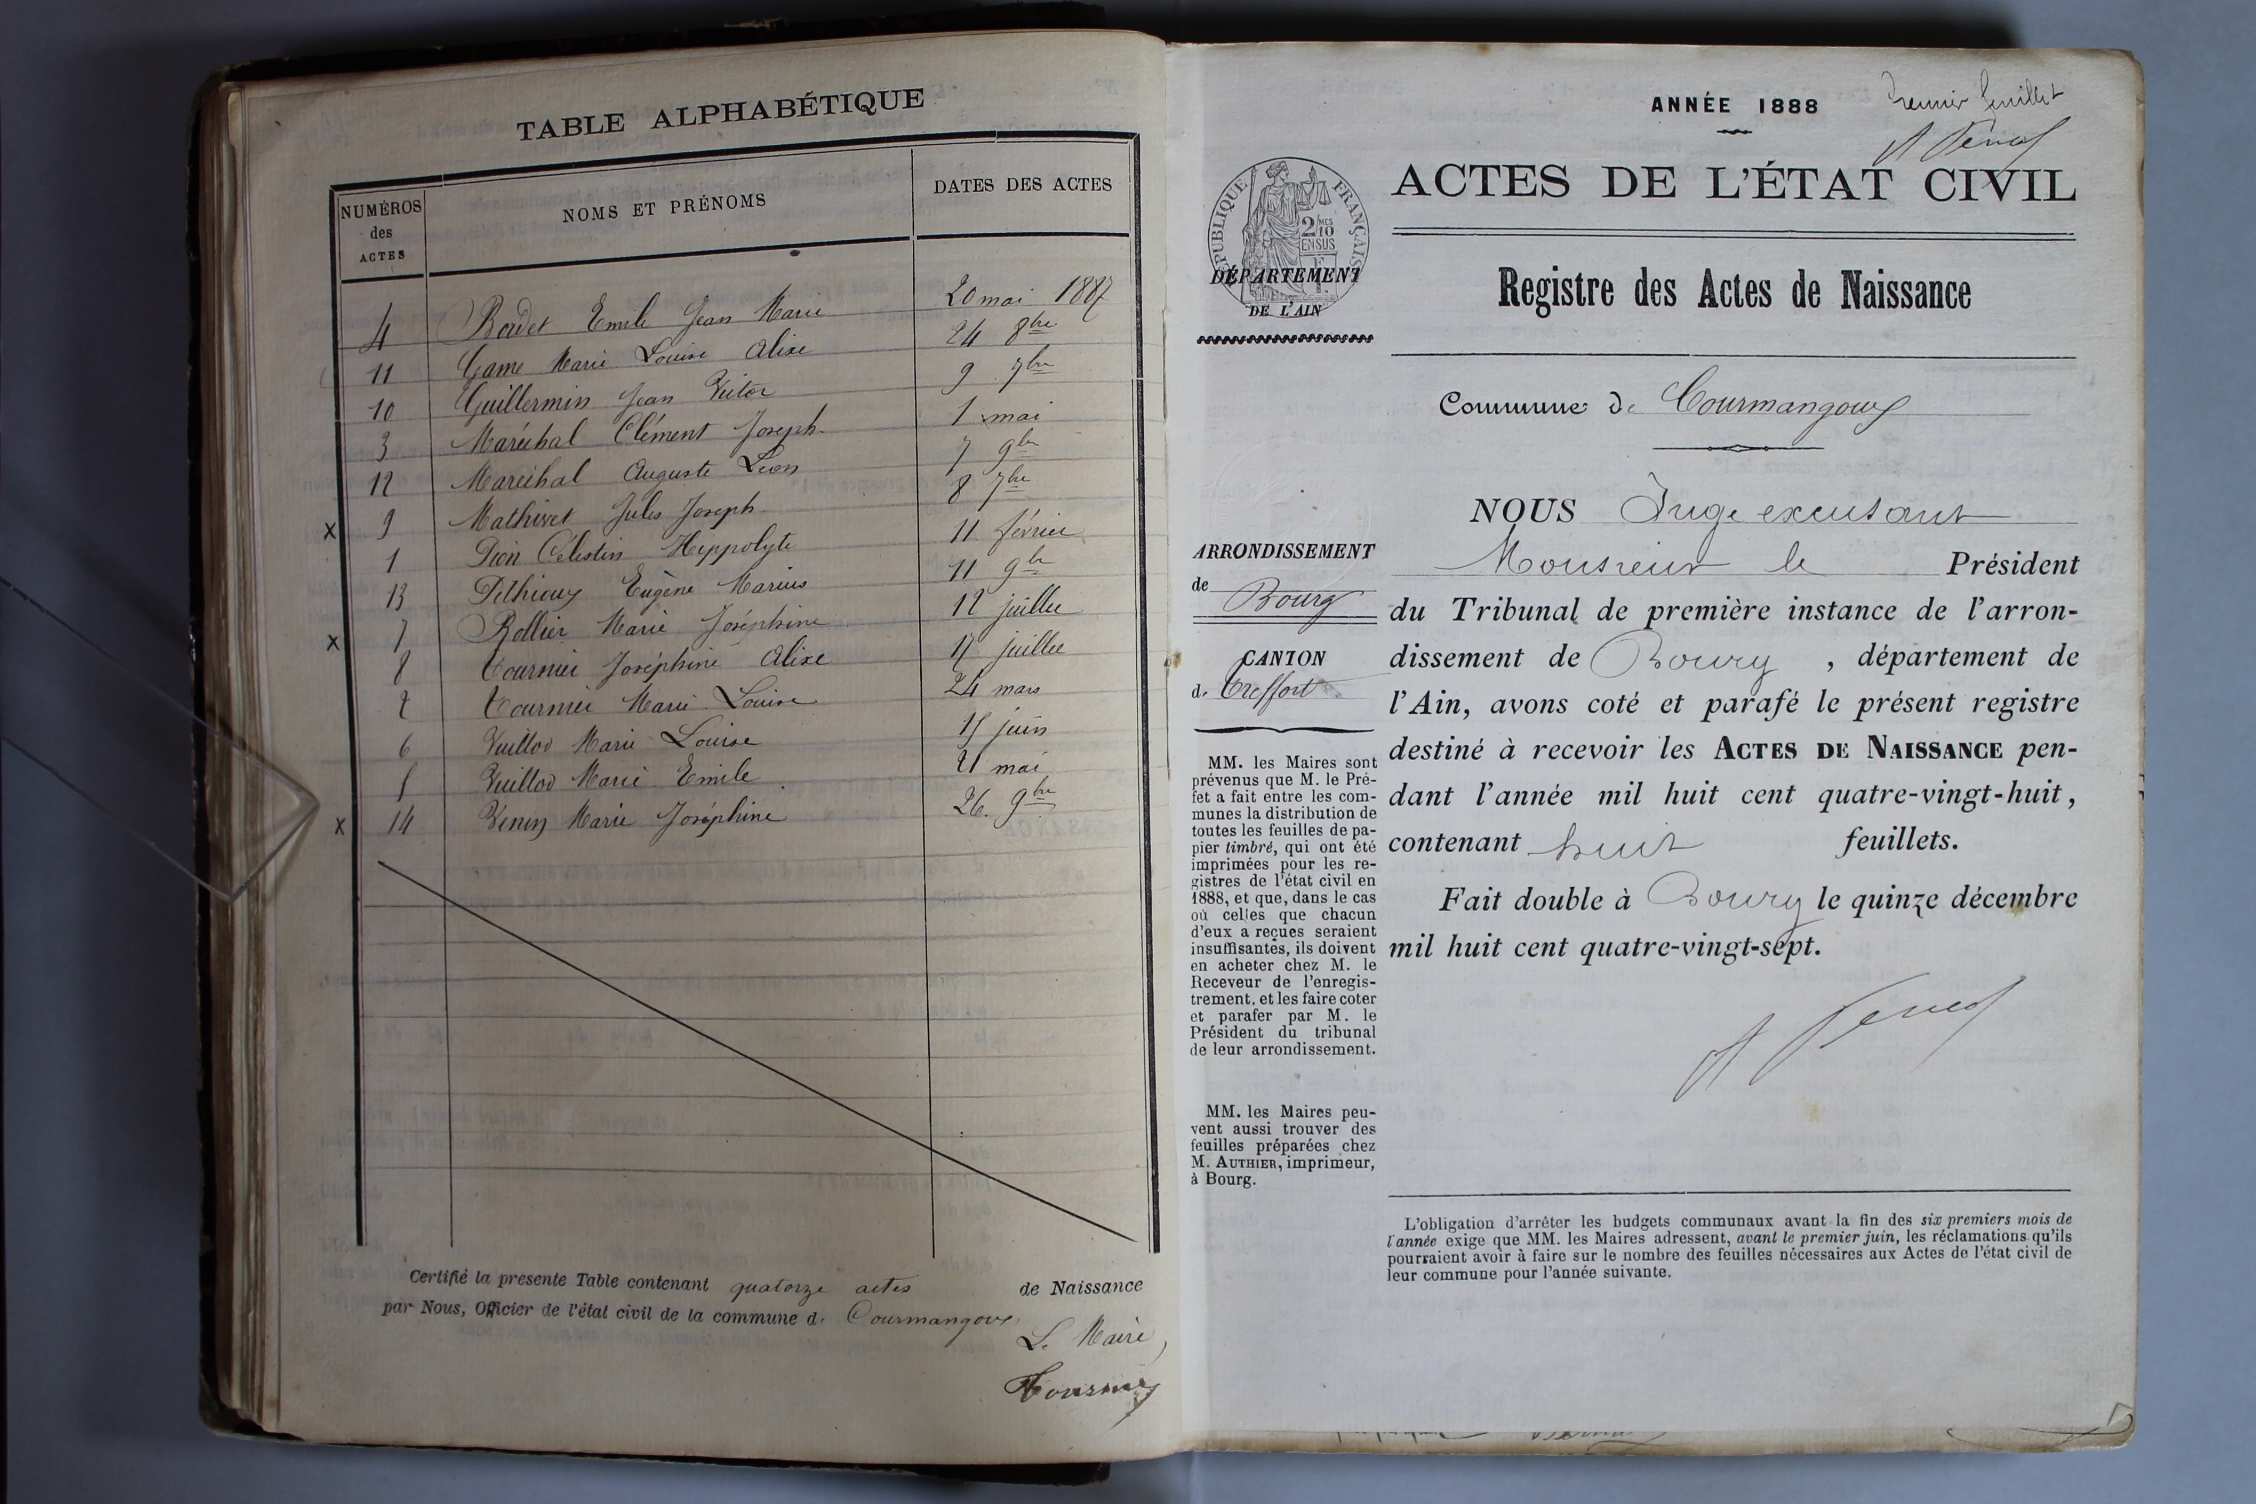 TABLE ALPHABÉTIQUE
NUMÉROS des ACTES
NOMS ET PRÉNOMS
DATES DES ACTES
4 Bodet Emile Jean Marie 20 mai 1887
11 Game Marie Louise Alixe 24 8bre
10 Guillermin Jean Victor 9 7bre
3 Maréchal Clément Joseph 1 mai
12 Maréchal Auguste Léon 7 9bre
x 9 Mathivet Jules Joseph 8 7bre
1 Pion Célestin Hippolyte 11 février
13 Pethieux Eugène Marius 11 9bre
x 7 Rollier Marie Joséphine 12 juillet
8 Tournier Joséphine Alixe 17 juillet
2 Tournier Marie Louise 24 mars
6 Vuillod Marie Louise 15 juin
5 Vuillod Marie Emile 21 mai
x 14 Marie Joséphine 26 9bre
Certifié la presente Table contenant quatorze actes de Naissance
par Nous, Officier de l'état civil de la commune de Courmangoux
Le Maire,
Tournier
ANNÉE 1888
Premier feuillet
ACTES DE L'ÉTAT CIVIL
RÉPUBLIQUE FRANÇAISE
2/10
EN SUS
DÉPARTEMENT
DE L'AIN
Registre des Actes de Naissance
Commune de Courmangoux
ARRONDISSEMENT
de Bourg
CANTON
de Treffort
MM. les Maires sont
prévenus que M. le Pré-
fet a fait entre les com-
munes la distribution de
toutes les feuilles de pa-
pier timbré, qui ont été
imprimées pour les re-
gistres de l'état civil en
1888, et que, dans le cas
où celles que chacun
d'eux a reçues seraient
insuffisantes, ils doivent
en acheter chez M. le
Receveur de l'enregis-
trement, et les faire coter
et parafer par M. le
Président du tribunal
de leur arrondissement.
MM. les Maires peu-
vent aussi trouver des
feuilles préparées chez
M. AUTHIER, imprimeur,
à Bourg.
NOUS Juge excusant
Monsieur le Président
du Tribunal de première instance de l'arron-
dissement de Bourg, département de
l'Ain, avons coté et parafé le présent registre
destiné à recevoir les ACTES DE NAISSANCE pen-
dant l'année mil huit cent quatre-vingt-huit,
contenant huit feuillets.
Fait double à Bourg le quinze décembre
mil huit cent quatre-vingt-sept.
L'obligation d'arrêter les budgets communaux avant la fin des six premiers mois de
l'année exige que MM. les Maires adressent, avant le premier juin, les réclamations qu'ils
pourraient avoir à faire sur le nombre des feuilles nécessaires aux Actes de l'état civil de
leur commune pour l'année suivante.